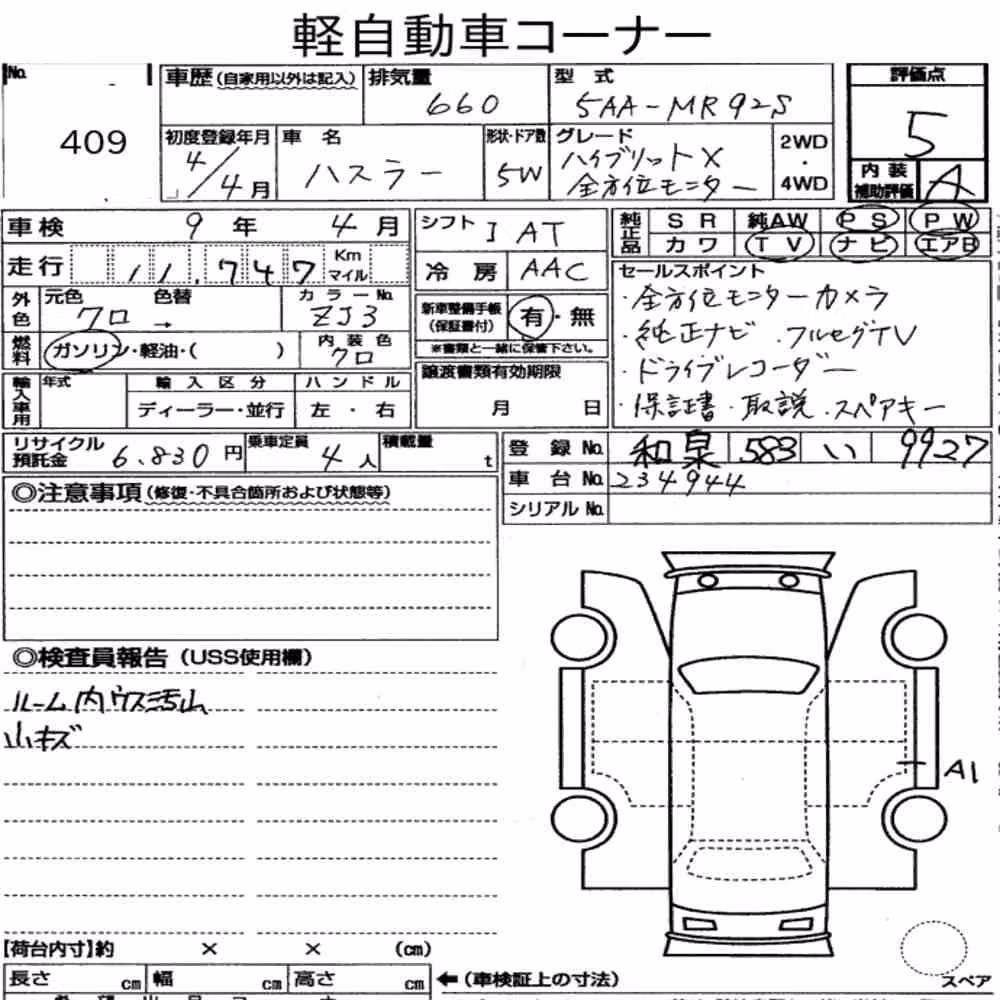 軽自動車コーナー
No. 409
車歴(自家用以外は記入)
排気量 660
型式 5AA-MR92S
評価点 5
内装補助評価 A
初度登録年月 4/4月
車名 ハスラー
形状・ドア数 5W
グレード ハイブリットX
全方位モニター
2WD・4WD
車検 9年 4月
走行 11,747 Km マイル
外色 元色 クロ 色替 → カラーNo. ZJ3
燃料 ガソリン・軽油・( ) 内装色 クロ
輸入車用 年式 輸入区分 ディーラー・並行 ハンドル 左・右
リサイクル預託金 6,830円 乗車定員 4人 積載量 t
シフト I AT
冷房 AAC
新車整備手帳(保証書付) 有・無
※書類と一緒に保管下さい。
譲渡書類有効期限
月 日
純正品 SR 純AW PS PW
カワ TV ナビ エアB
セールスポイント
・全方位モニターカメラ
・純正ナビ.フルセグTV
・ドライブレコーダー
・保証書.取説.スペアキー
登録No. 和泉 583 い 9927
車台No. 234944
シリアルNo.
◎注意事項(修復・不具合箇所および状態等)
◎検査員報告(USS使用欄)
ルーム内ウス汚レ
小キズ
A1
【荷台内寸】約 × × (cm)
長さ cm 幅 cm 高さ cm
←(車検証上の寸法)
スペア